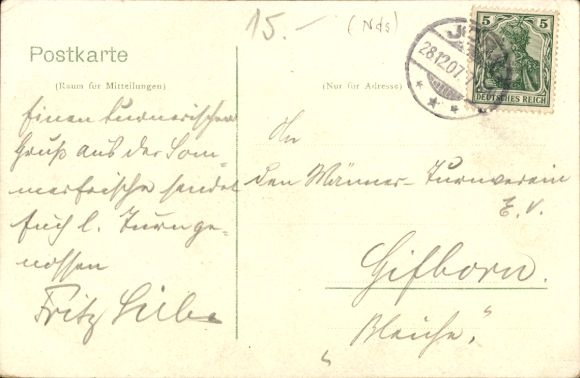 15.- (Nds)
Postkarte
(Raum für Mitteilungen)
(Nur für Adresse)
28.12.07
5 5
DEUTSCHES REICH
Einen turnerischen
Gruß aus der Som-
merfrische sendet
Euch l. Turnge-
nossen
Fritz
An
den Männer-Turnverein
E.V.
Gifhorn.
"Bleiche."